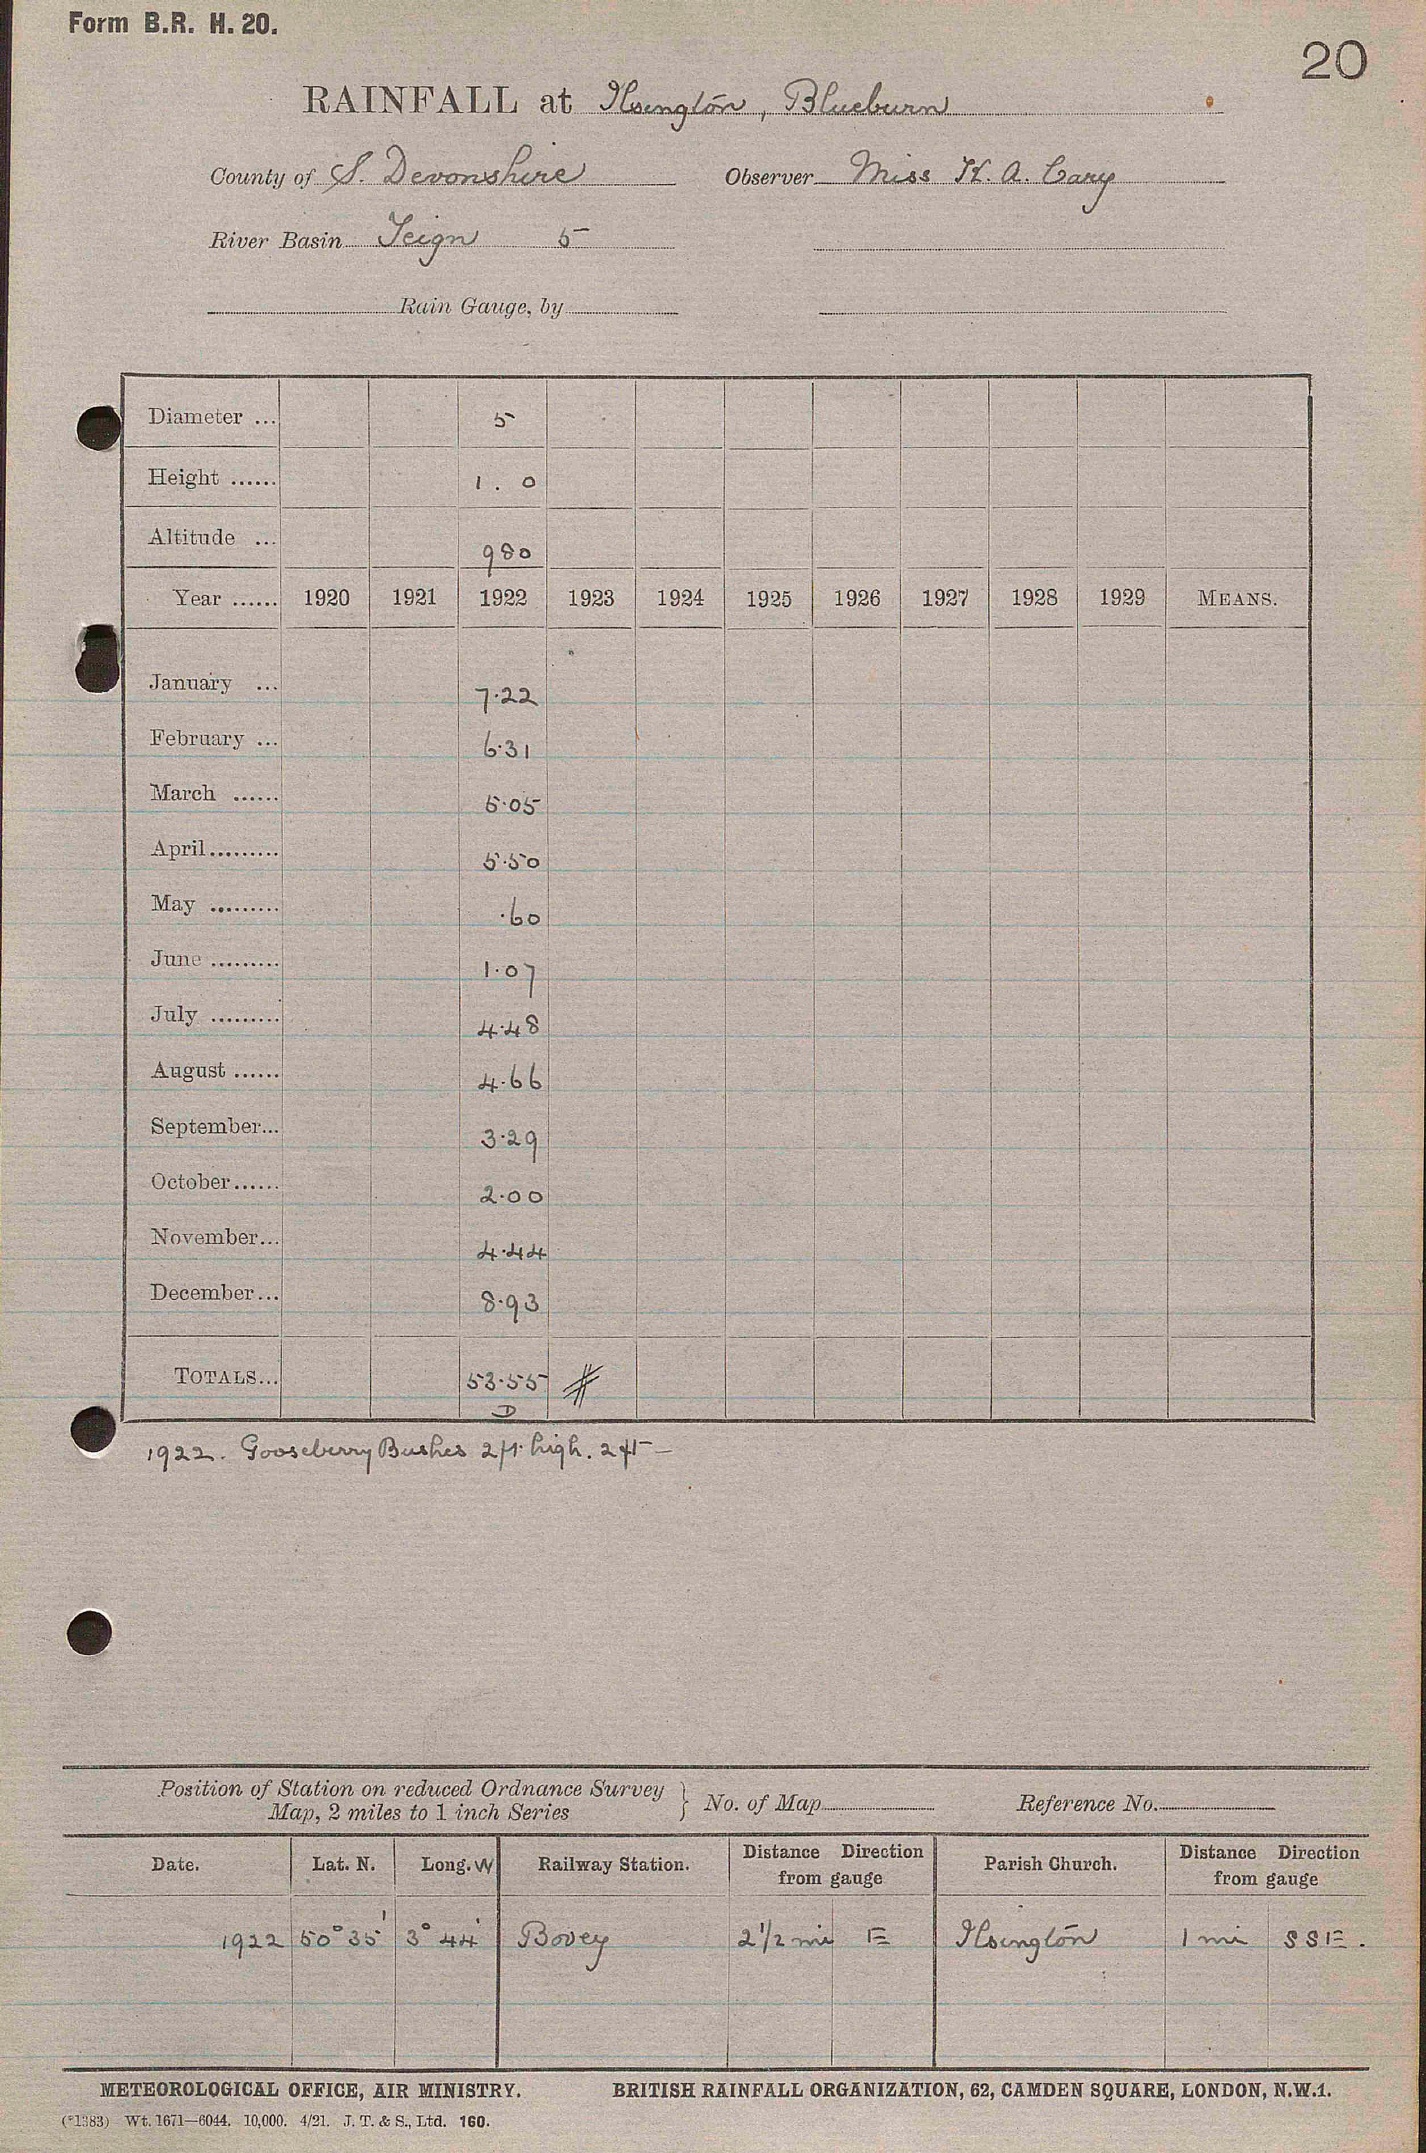 Form B.R. H. 20.
20
RAINFALL at Ilsington, Blueburn
County of S. Devonshire Observer Miss K. A. Cary
River Basin Teign 5
Rain Gauge, by
Diameter ... 5
Height ...... 1. 0
Altitude ... 980
Year ...... 1920 1921 1922 1923 1924 1925 1926 1927 1928 1929 MEANS.
January ... 7.22
February ... 6.31
March ...... 5.05
April ......... 5.50
May ......... .60
June ......... 1.07
July ......... 4.48
August ...... 4.66
September... 3.29
October...... 2.00
November... 4.44
December... 8.93
TOTALS... 53.55 #
D
1922. Gooseberry Bushes 2ft. high. 2ft —
Position of Station on reduced Ordnance Survey
Map, 2 miles to 1 inch Series } No. of Map Reference No.
Date. Lat. N. Long. W Railway Station. Distance Direction from gauge Parish Church. Distance Direction from gauge
1922 50° 35' 3° 44' Bovey 2 1/2 mi E Ilsington 1 mi SSE.
METEOROLOGICAL OFFICE, AIR MINISTRY. BRITISH RAINFALL ORGANIZATION, 62, CAMDEN SQUARE, LONDON, N.W.1.
(*1383) Wt. 1671—6044. 10,000. 4/21. J. T. & S., Ltd. 160.